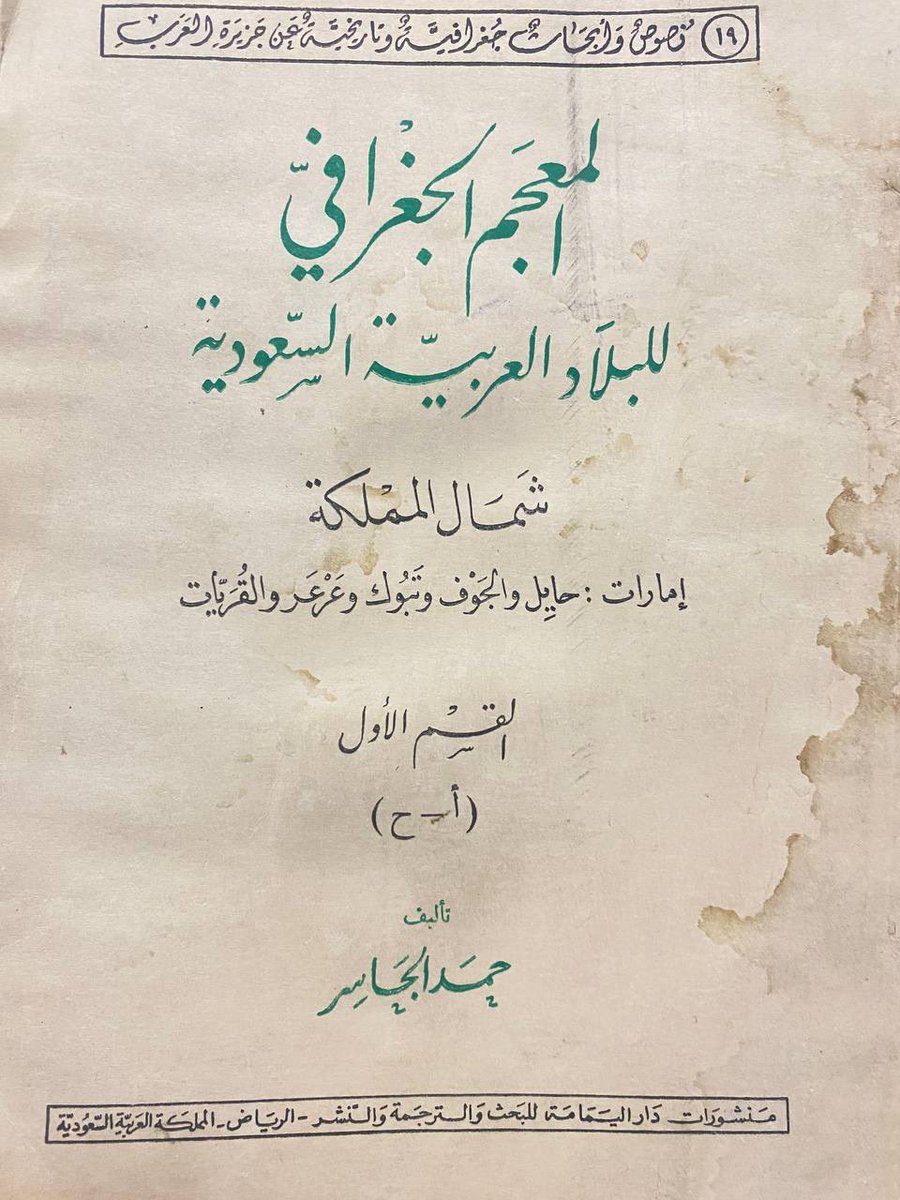 ١٩ نصوص وأبحاث جغرافية وتاريخية عن جزيرة العرب
المعجم الجغرافيّ
للبلاد العربيّة السّعودية
شَمَال المَمْلكة
إمارات : حايِل والجَوْف وتَبُوك وعَرْعَر والقُرَيّات
القِسْم الأول
(أ - ح)
تأليف
حمَد الجَاسِر
مَنشورَات دَار اليَمَامَة للبَحث وَالترجَمة وَالنّشر - الريَاض - المملكة العَربيّة السّعُوديّة